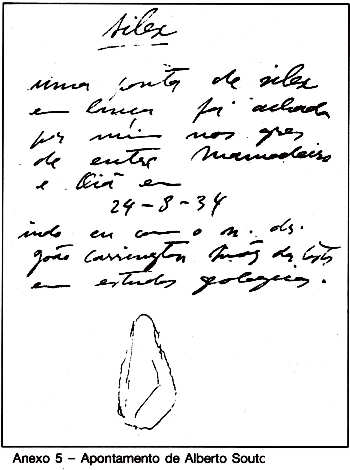 silex
uma ponta de silex
em lança foi achada
por mim nos gres
de entre Mamodeiro
e Oiã em
24-3-34
indo eu com o n. dr.
João Carrington Simões da Costa
em estudos geologicos.
Anexo 5 – Apontamento de Alberto Souto